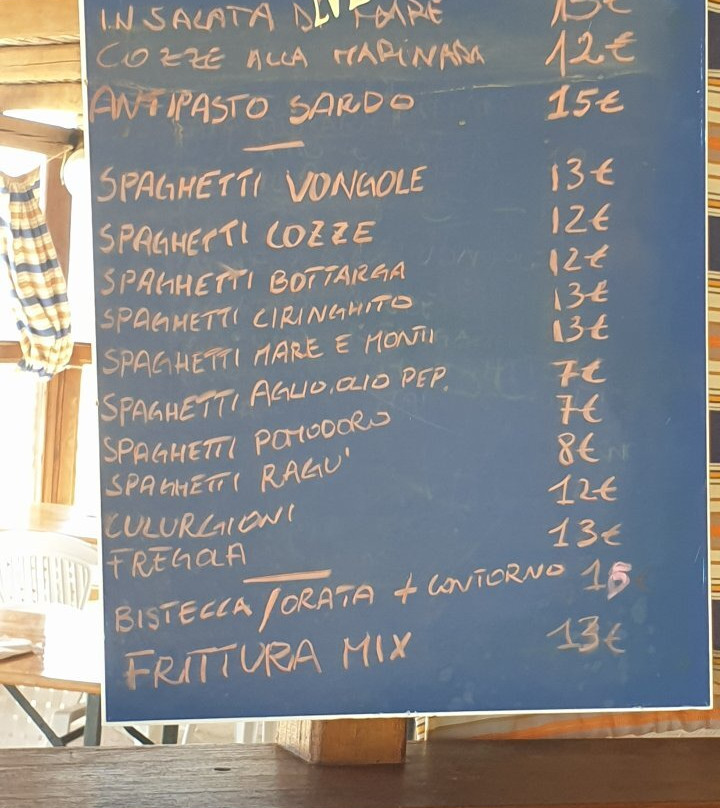 INSALATA DI MARE 15€
COZZE ALLA MARINARA 12€
ANTIPASTO SARDO 15€
SPAGHETTI VONGOLE 13€
SPAGHETTI COZZE 12€
SPAGHETTI BOTTARGA 12€
SPAGHETTI CIRINGHITO 13€
SPAGHETTI MARE E MONTI 13€
SPAGHETTI AGLIO, OLIO PEP. 7€
SPAGHETTI POMODORO 7€
SPAGHETTI RAGU' 8€
CULURGIONI 12€
FREGOLA 13€
BISTECCA / ORATA + CONTORNO 15
FRITTURA MIX 13€